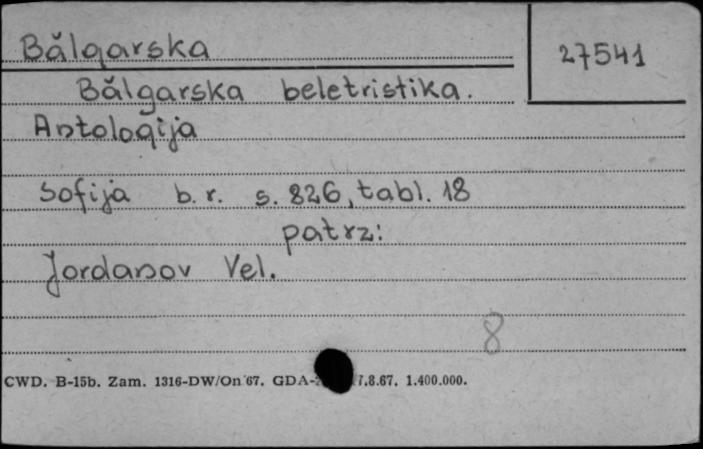 Bălgarska
27541
Bălgarska beletristika.
Antologija
Sofija b.r. s. 826, tabl. 18
patrz:
Jordanov Vel.
8
CWD. B-15b. Zam. 1316-DW/On 67. GDA- 7.8.67. 1.400.000.